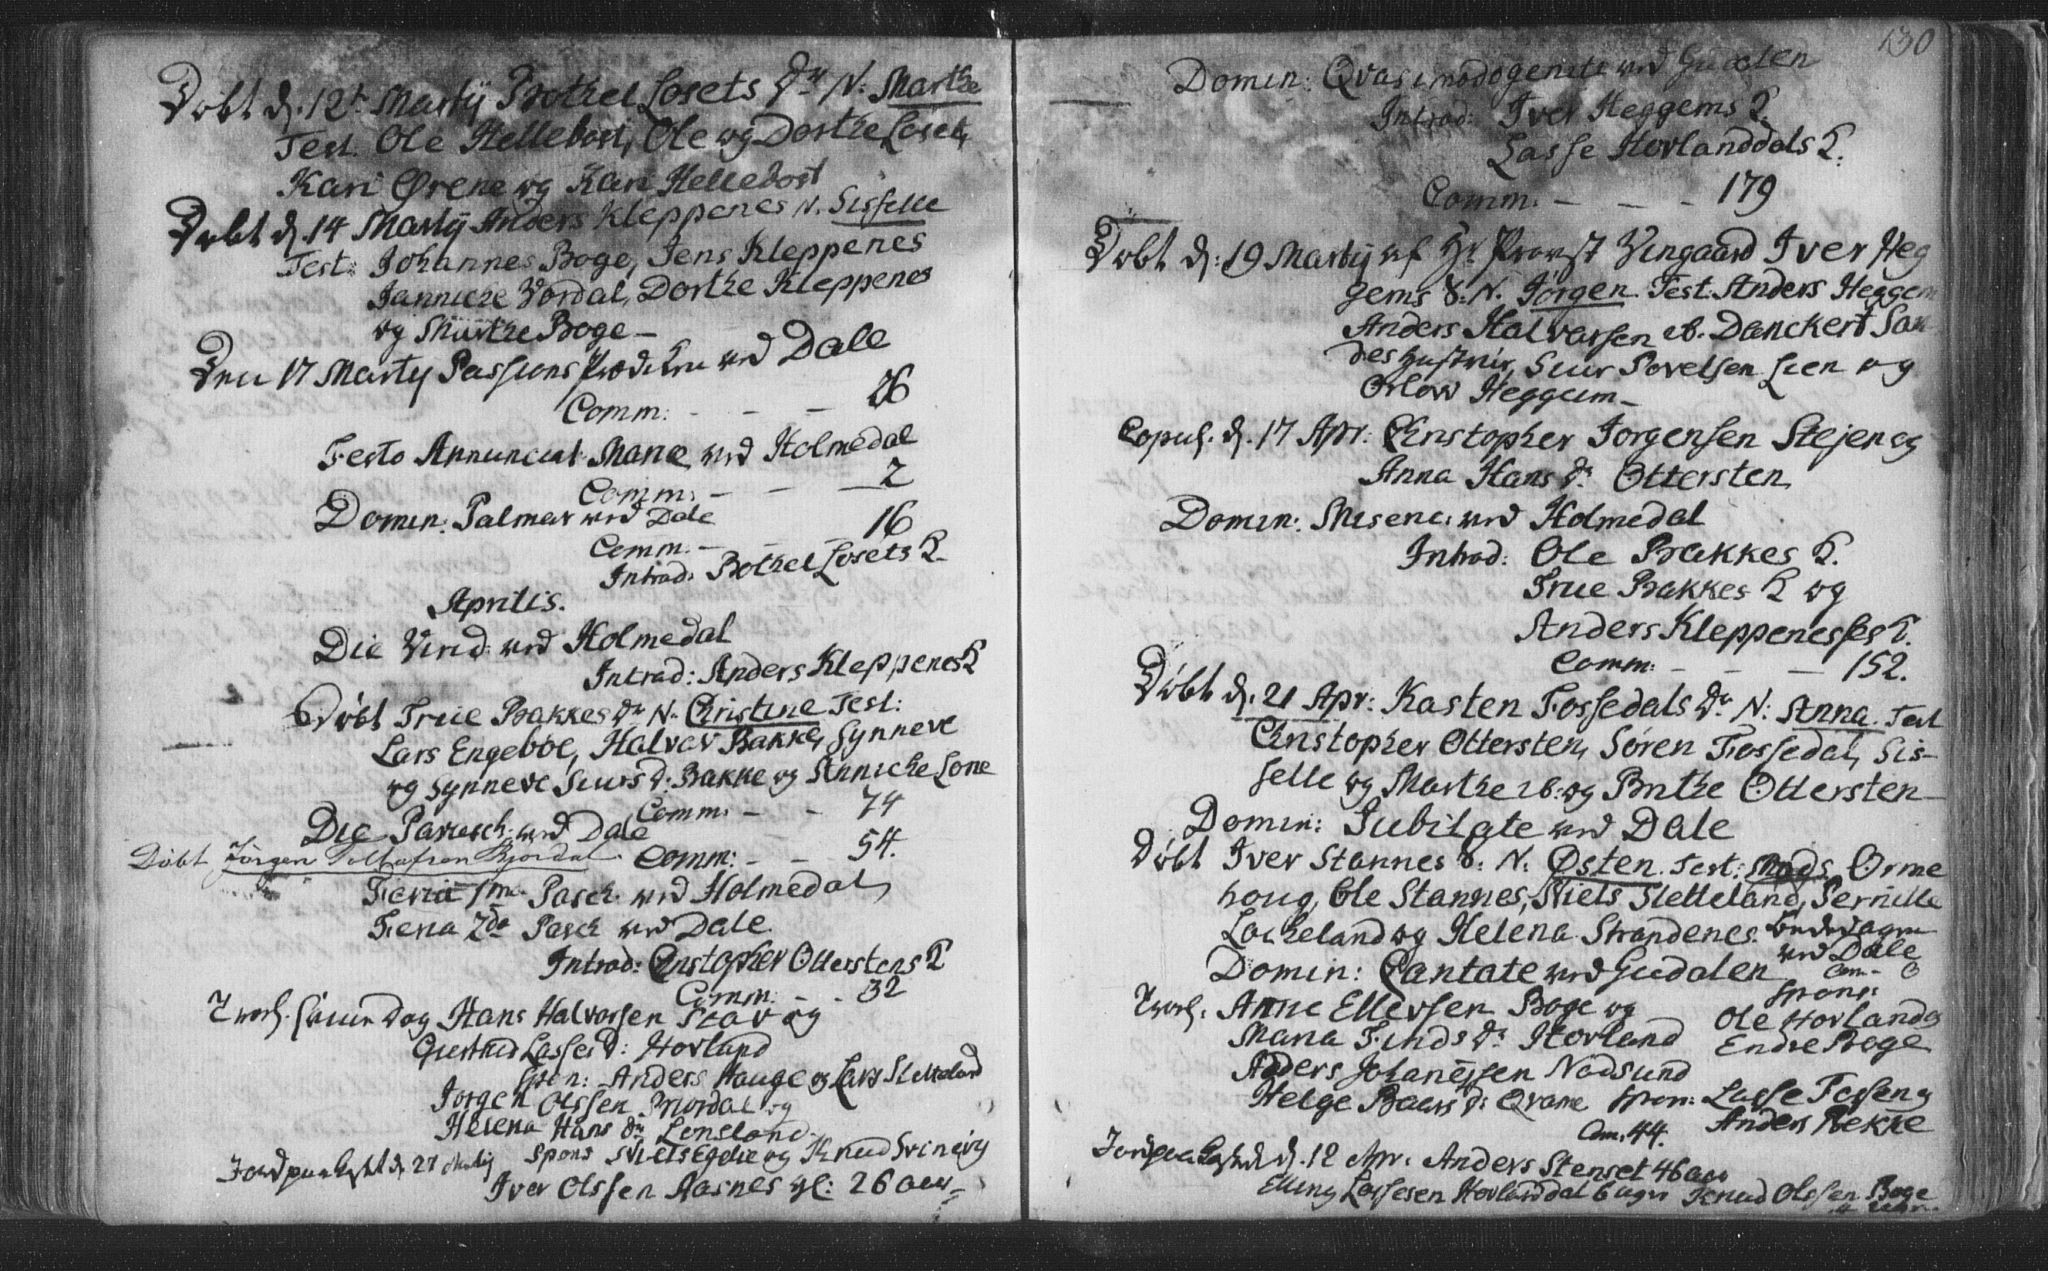 Døbt d. 12t Martij Bothel Losets Dr N: Marthe
Test. Ole Hellebost, Ole og Dorthe Loset,
Kari Ørene og Kari Hellebost
Døbt d. 14 Martij Anders Kleppenes N. Sisselle
Test: Johannes Boge, Jens Kleppenes
Jannicke Vordal, Dorthe Kleppenes
og Marthe Boge
Den 17 Martij Passions Prædiken ved Dale
Comm: - - - 26
Festo Annunciat Mariæ ved Holmedal
Comm: - - - 2
Domin: Palmar ved Dale
Comm: - - - 16
Introd: Bothel Losets K.
Aprilis.
Die Virid: ved Holmedal
Introd: Anders Kleppenes K
Døbt True Bakkes Dr N. Christine Test:
Lars Engeboe, Halvor Bakke, Synneve
og Synneve Siurs d: Bakke og Annicke Lone
Comm: - - 74
Die Parasch: ved Dale
Comm: - - 54.
Døbt Jørgen Tollafsen Bjordal
Feria 1ma Pasch. ved Holmedal
Feria 2da Pasch ved Dale
Introd: Christopher Otterstens K
Comm: - - 32
Trol. samme Dag Hans Halvorsen Slav og
Giertrud Lasses d: Hovland
Spon: Anders Hauge og Lars Sletteland
Jørgen Olssen Biordal og
Helena Hans Dr Lensland
Spons Niels Egdie og Knud Svinevig
Jordpaakast d. 27 Martij
Iver Olssen Aasnes gl: 26 aar
130
Domin: Quasimodogeniti ved Guddalen
Introd: Iver Heggems K.
Lasse Hovlanddals K.
Comm. - - - 179
Døbt d: 19 Martij af Hr Provst Vingaard Iver Heg
gems S: N. Jørgen Test. Anders Heggem
Anders Halvorsen ib. Danckert San
des Hustrue, Siur Povelsen Lien og
Orlow Heggem
Copul. d. 17 Apr: Christopher Jorgensen Stejen og
Anna Hans Dr Ottersten
Domin: Miseric: ved Holmedal
Introd: Ole Bakkes K.
True Bakkes K og
Anders Kleppenesses K.
Comm: - - - 152.
Døbt d. 21 Apr: Kasten Fossedals Dr N: Anna. Test
Christopher Ottersten, Søren Fossedal, Sis-
selle og Marthe ib: og Brithe Ottersten
Domin: Jubilate ved Dale
Døbt Iver Stannes S: N. Østen. Test: Mads Orme
houg, Ole Stannes, Niels Sletteland, Pernille
Lockeland og Helena Strandenes. Bededagen
ved Dale
Com- 0
Domin: Cantate ved Guddalen
Spons:
Trol. Arne Ellevsen Boge og
Ole Hovland og
Maria Finds Dr Hovland
Endre Boge
Anders Johannessen Nodsund
Helge Baars d: Qvame Spon: Lasse Fossen og
Anders Bekke
Com. 44.
Jordpaakast d. 12 Apr. Anders Stenset 46 aar
Elling Lassesen Hovlanddal 6 uger Knud Olssen Boge